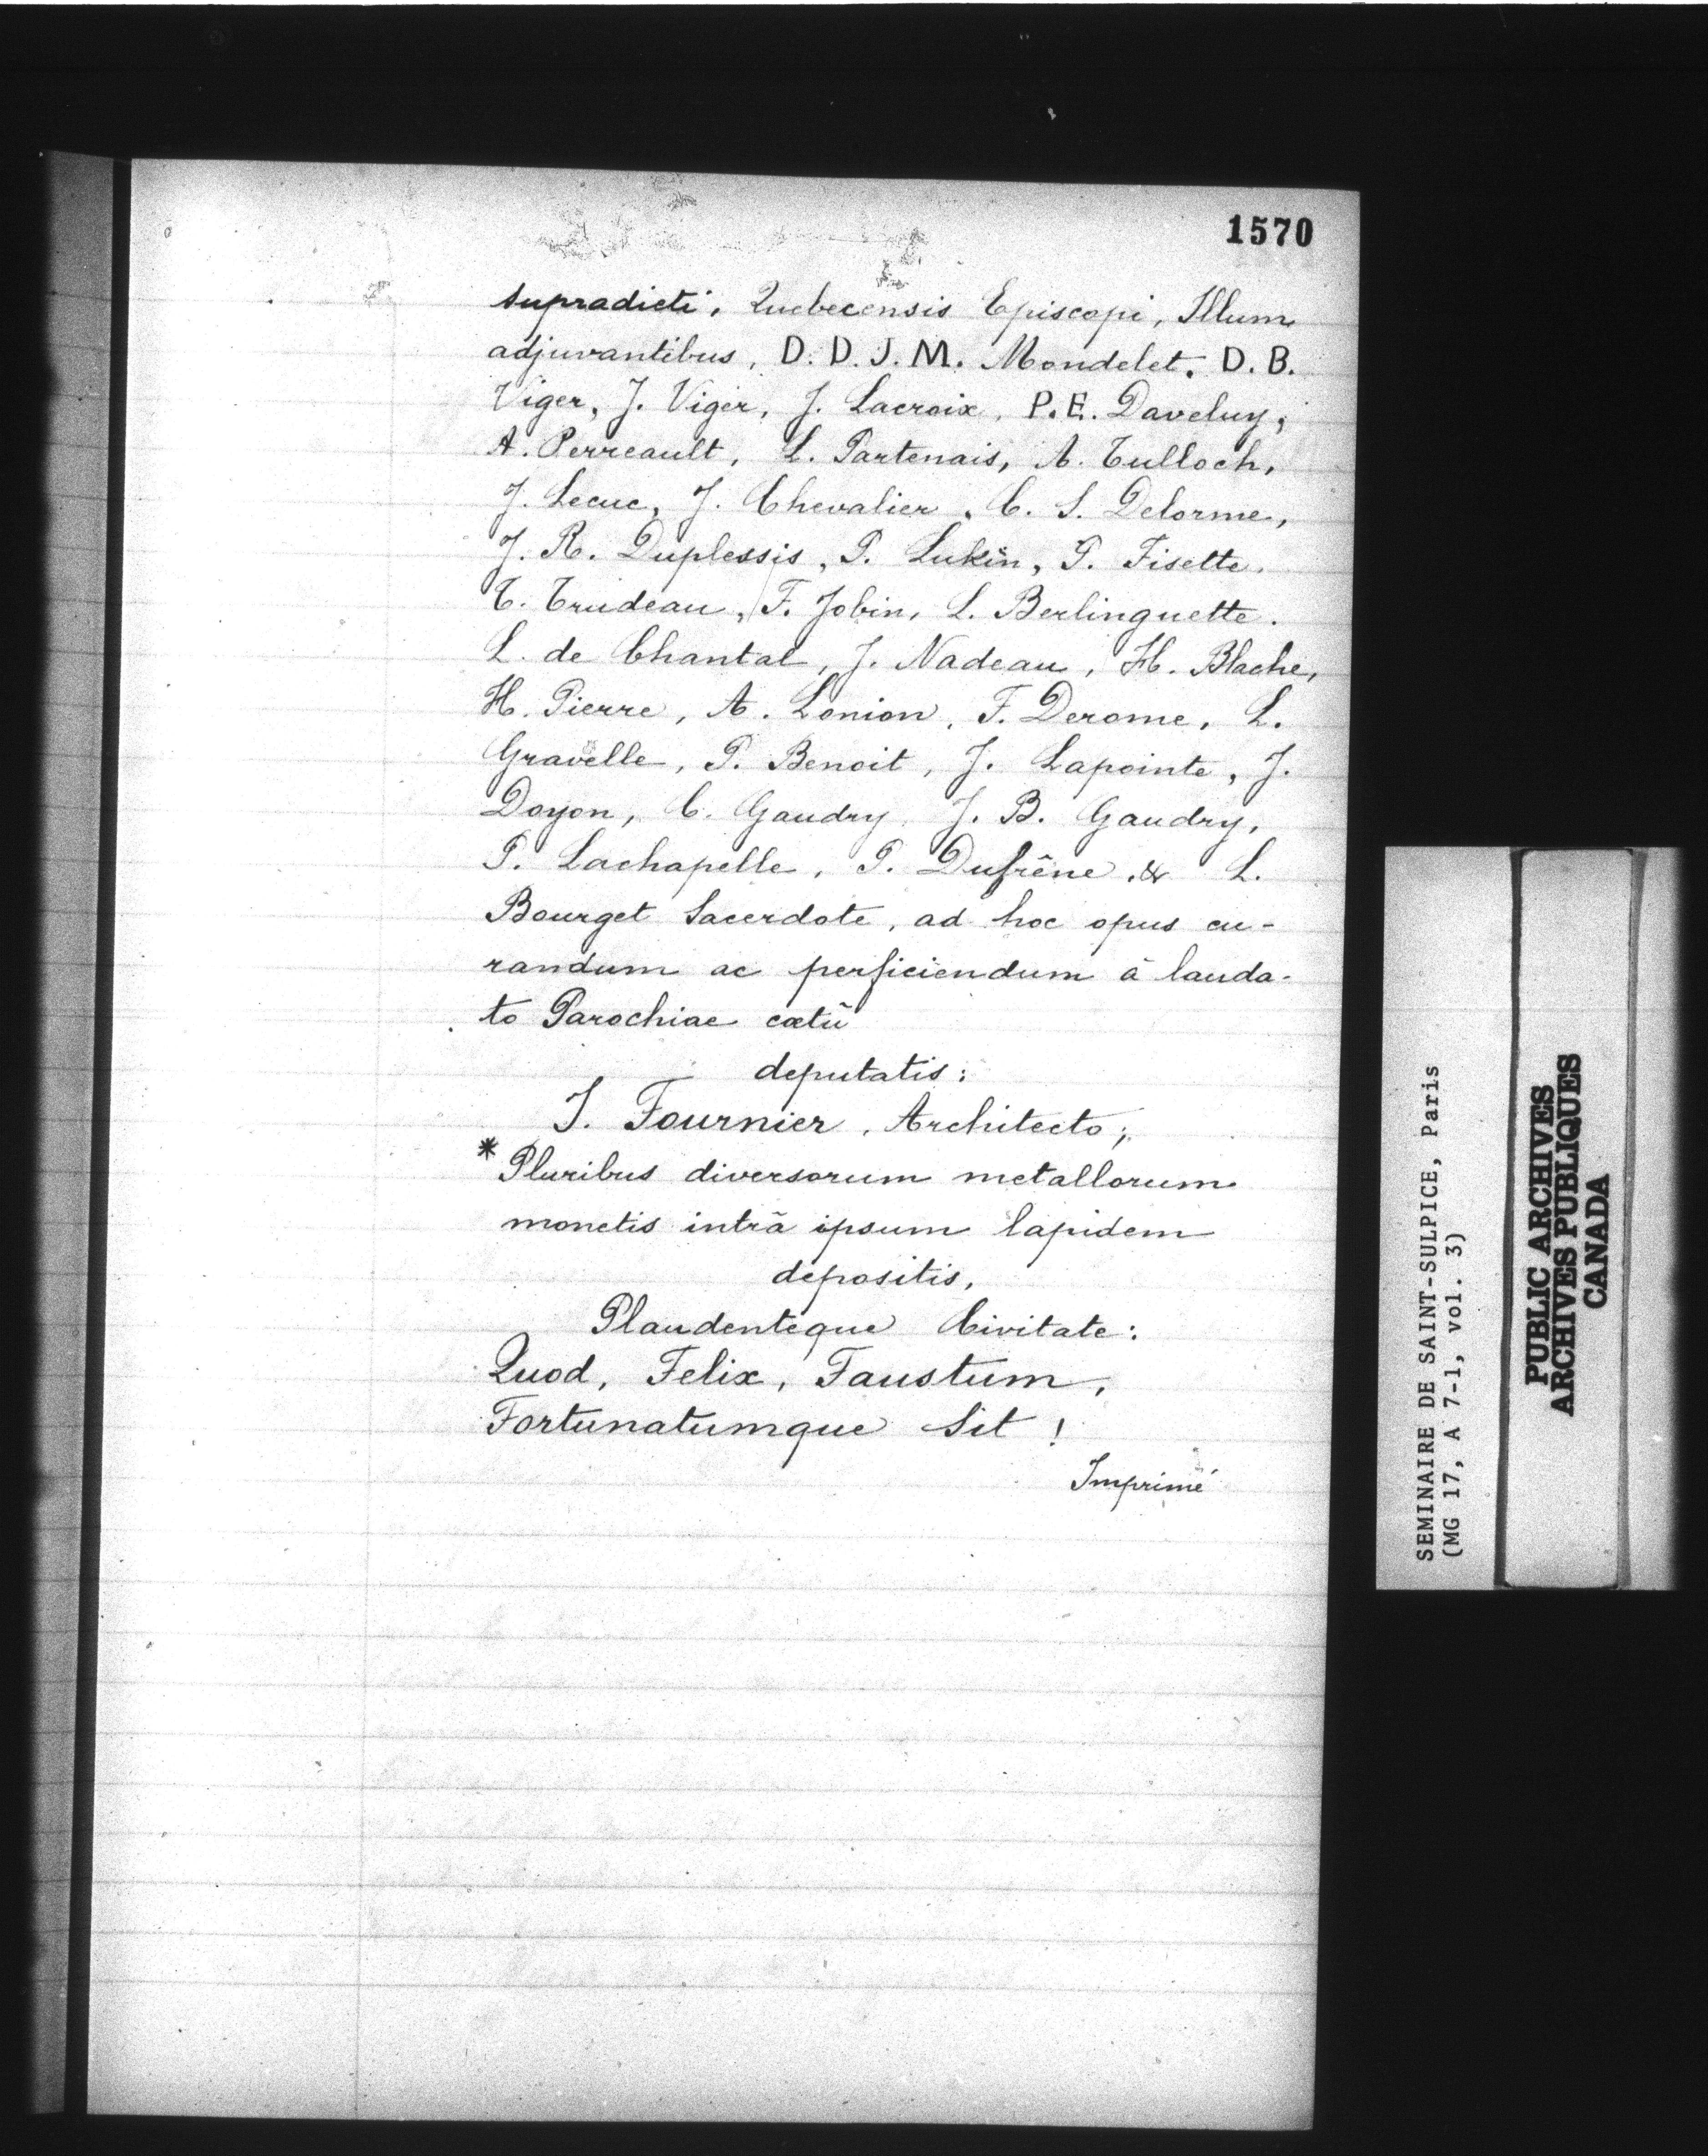 1570
supradicti, Quebecensis Episcopi, Illum
adjuvantibus, D. D. J. M. Mondelet, D. B.
Viger, J. Viger, J. Lacroix, P. E. Daveluy,
A. Perreault, L. Partenais, A. Tulloch,
J. Lecuc, J. Chevalier, C. S. Delorme,
J. R. Duplessis, P. Lukin, P. Fisette.
T. Trudeau, F. Jobin, L. Berlinguette.
L. de Chantal, J. Nadeau, H. Blache,
H. Pierre, A. Lonion, F. Derome, L.
Gravelle, P. Benoit, J. Lapointe, J.
Doyon, C. Gaudry, J. B. Gaudry,
P. Lachapelle, P. Dufrêne, & L.
Bourget Sacerdote, ad hoc opus cu-
randum ac perficiendum à lauda-
to Parochiae cœtû
deputatis:
J. Fournier, Architecto;
* Pluribus diversorum metallorum
monetis intrà ipsum lapidem
depositis,
Plaudenteque Civitate:
Quod, Felix, Faustum,
Fortunatumque Sit !
Imprimé
SEMINAIRE DE SAINT-SULPICE, Paris
(MG 17, A 7-1, vol. 3)
PUBLIC ARCHIVES
ARCHIVES PUBLIQUES
CANADA